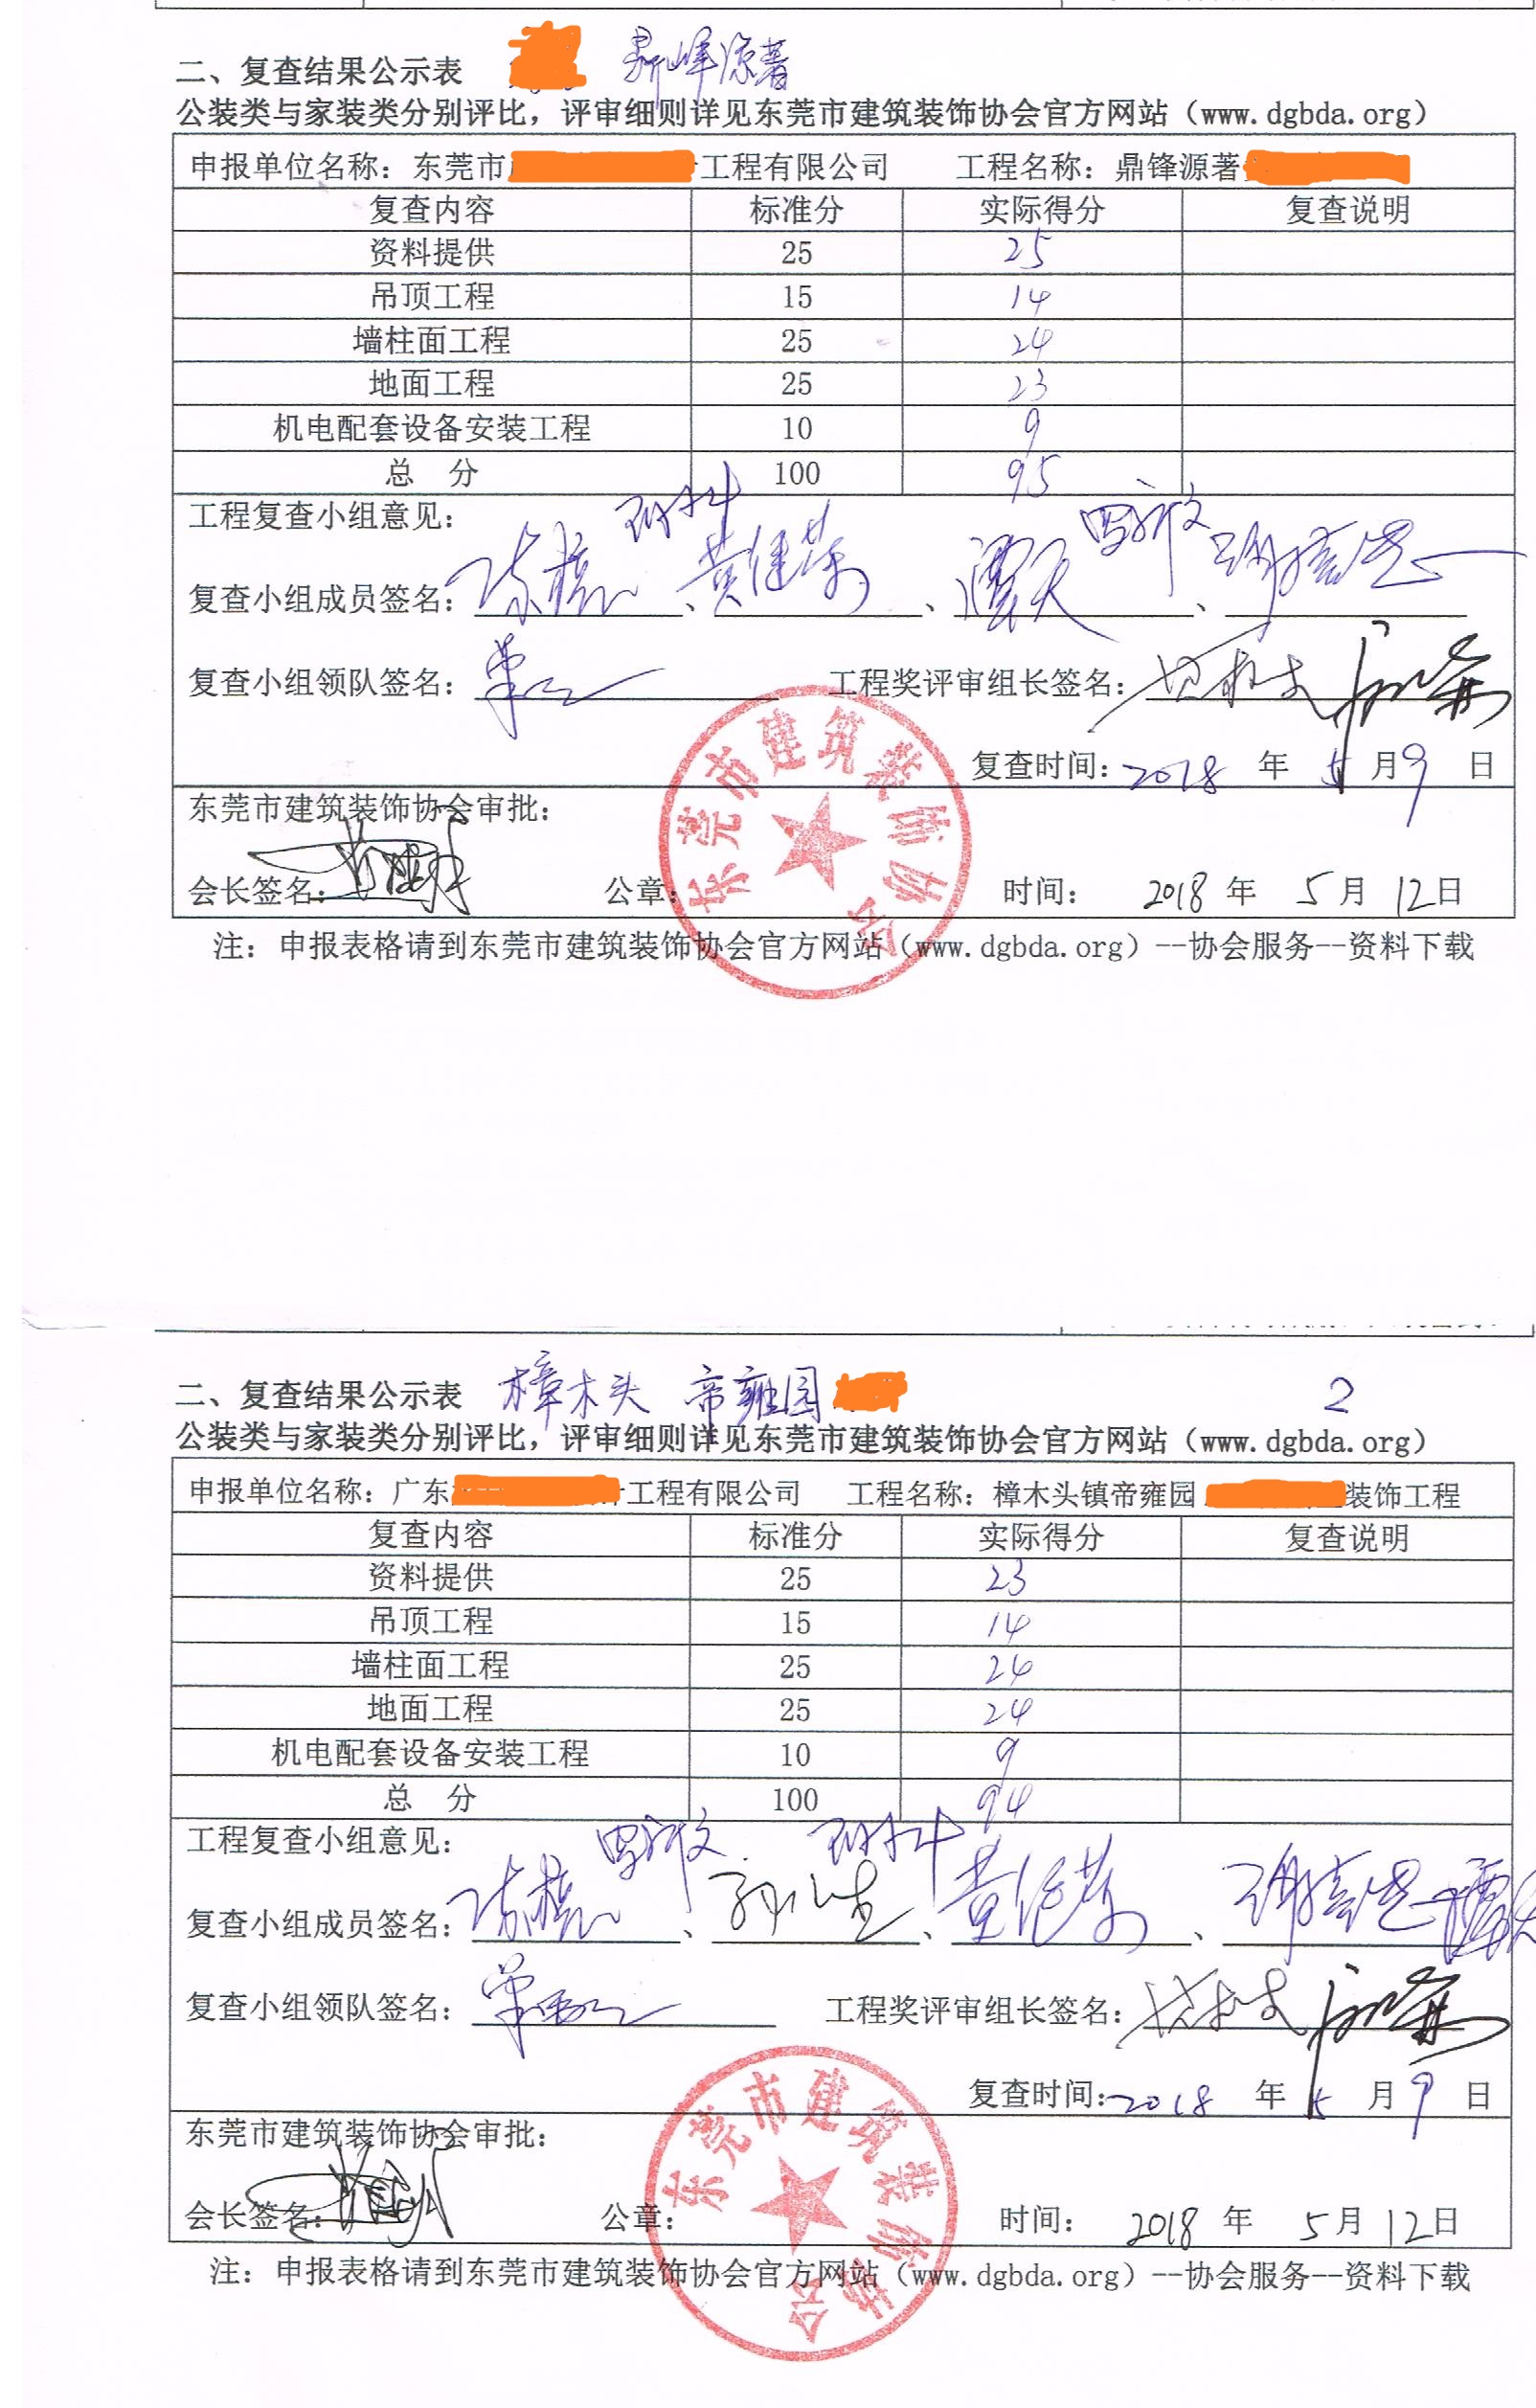 二、复查结果公示表 鼎峰源著
公装类与家装类分别评比，评审细则详见东莞市建筑装饰协会官方网站（www.dgbda.org）
申报单位名称：东莞市 工程有限公司 工程名称：鼎锋源著
复查内容 标准分 实际得分 复查说明
资料提供 25 25
吊顶工程 15 14
墙柱面工程 25 24
地面工程 25 23
机电配套设备安装工程 10 9
总 分 100 95
工程复查小组意见：
复查小组成员签名： 、 、 、
复查小组领队签名： 工程奖评审组长签名：
复查时间：2018 年 5 月 9 日
东莞市建筑装饰协会审批：
会长签名： 公章： 时间： 2018 年 5 月 12 日
东莞市建筑装饰协会
注：申报表格请到东莞市建筑装饰协会官方网站（www.dgbda.org）--协会服务--资料下载
二、复查结果公示表 樟木头 帝雍园 2
公装类与家装类分别评比，评审细则详见东莞市建筑装饰协会官方网站（www.dgbda.org）
申报单位名称：广东 工程有限公司 工程名称：樟木头镇帝雍园 装饰工程
复查内容 标准分 实际得分 复查说明
资料提供 25 23
吊顶工程 15 14
墙柱面工程 25 24
地面工程 25 24
机电配套设备安装工程 10 9
总 分 100 94
工程复查小组意见：
复查小组成员签名： 、 、 、
复查小组领队签名： 工程奖评审组长签名：
复查时间：2018 年 5 月 9 日
东莞市建筑装饰协会审批：
会长签名： 公章： 时间： 2018 年 5 月 12 日
东莞市建筑装饰协会
注：申报表格请到东莞市建筑装饰协会官方网站（www.dgbda.org）--协会服务--资料下载